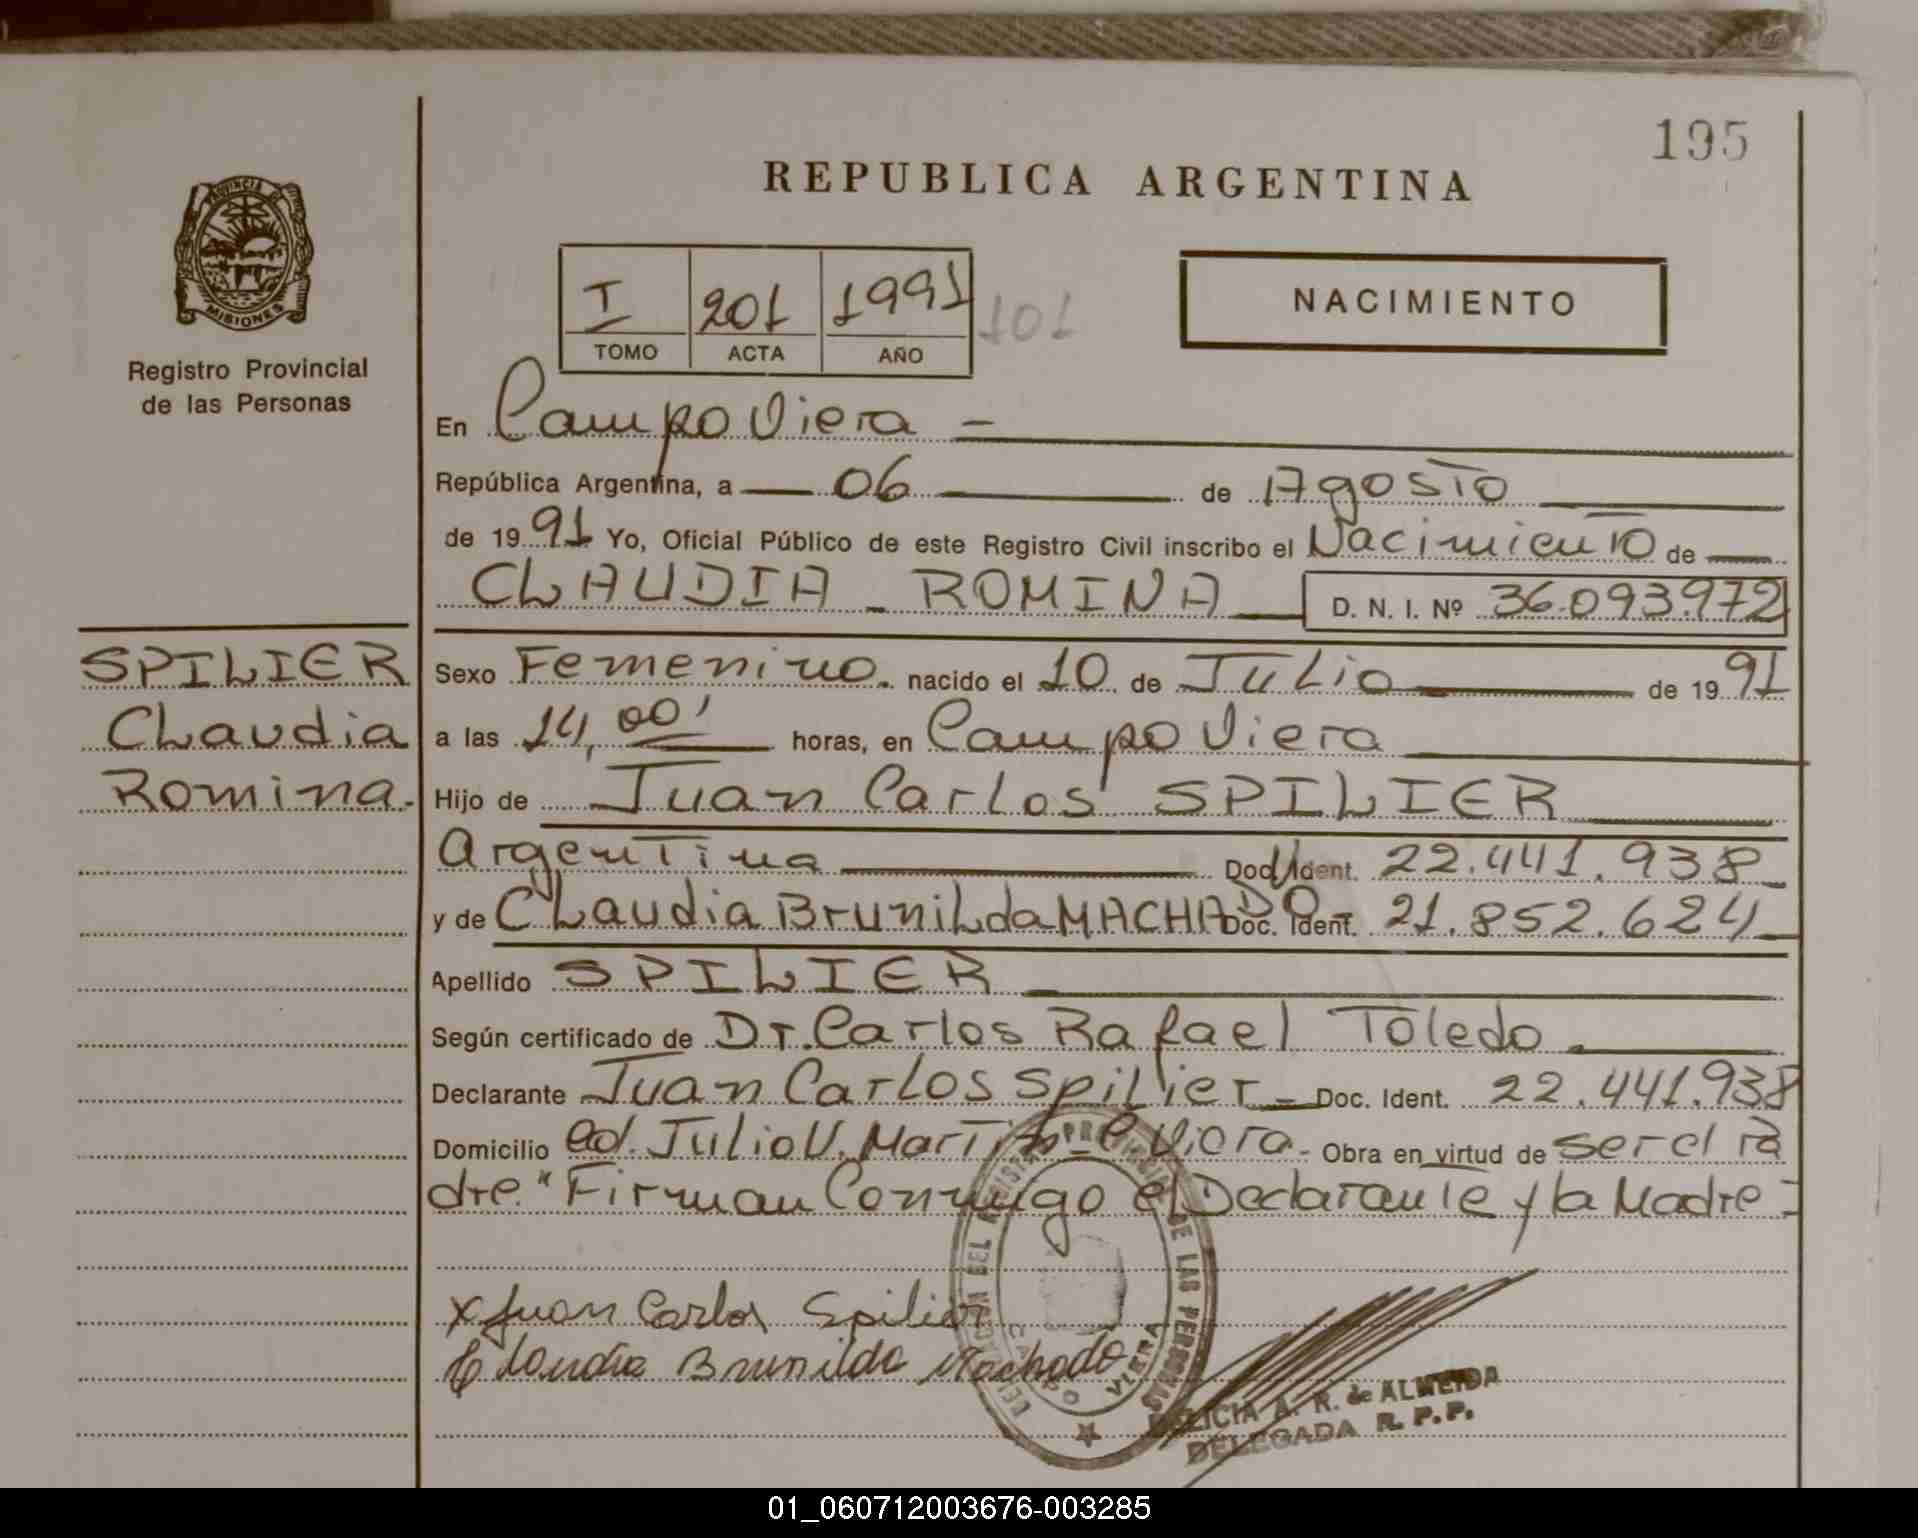 195
REPUBLICA ARGENTINA
PROVINCIA DE
MISIONES
Registro Provincial
de las Personas
I 201 1991 101
TOMO ACTA AÑO
NACIMIENTO
En Campo Viera -
República Argentina, a 06 de Agosto
de 1991 Yo, Oficial Público de este Registro Civil inscribo el Nacimiento de
CLAUDIA - ROMINA D. N. I. Nº 36.093.972
SPILIER
Claudia
Romina.
Sexo Femenino. nacido el 10 de Julio de 1991
a las 14,00' horas, en Campo Viera
Hijo de Juan Carlos SPILIER
Argentina Doc. Ident. 22.441.938
y de Claudia Brunilda MACHADO - Doc. Ident. 21.852.624
Apellido SPILIER
Según certificado de Dr. Carlos Rafael Toledo.
Declarante Juan Carlos Spilier - Doc. Ident. 22.441.938
Domicilio Julio U. Martin - C Viera - Obra en virtud de ser el Pa
dre." Firman Conmigo el Declarante y la Madre =
x Juan Carlos Spilier
Claudia Brunilda Machado
DELEGACION DEL REGISTRO PROVINCIAL DE LAS PERSONAS
CAMPO VIERA
A. R. de ALMEIDA
DELEGADA R. P. P.
01_060712003676-003285